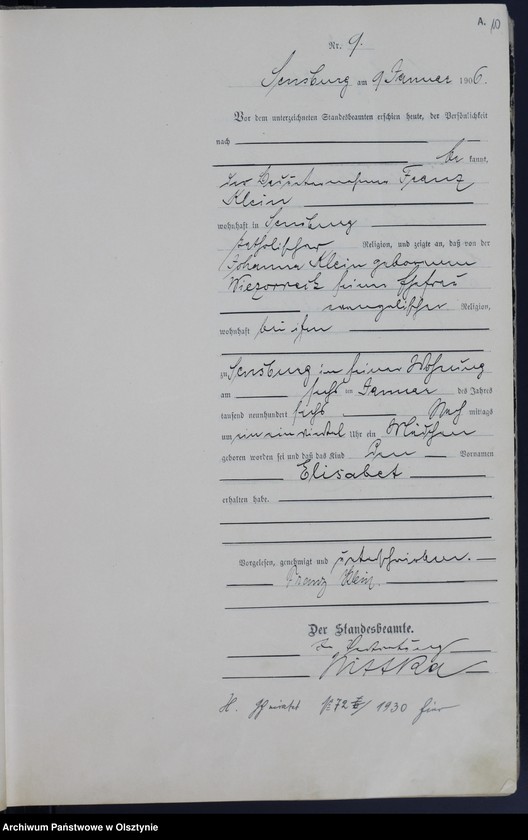 A. 10
Nr. 9.
Sensburg am 9 Januar 1906.
Vor dem unterzeichneten Standesbeamten erschien heute, der Persönlichkeit
nach
be kannt,
der Franz
Klein
wohnhaft in Sensburg
katholischer Religion, und zeigte an, daß von der
Johanna Klein geborenen
Wiezorreck seiner Ehefrau
evangelischer Religion,
wohnhaft bei ihm
zu Sensburg in seiner Wohnung
am sechs ten Januar des Jahres
tausend neunhundert sechs Nach mittags
um ein viertel Uhr ein Mädchen
geboren worden sei und daß das Kind den Vornamen
Elisabet
erhalten habe.
Vorgelesen, genehmigt und unterschrieben.
Franz Klein.
Der Standesbeamte.
In Vertretung
Wittka
H. Heiratet № 72 1930 hier
Archiwum Państwowe w Olsztynie